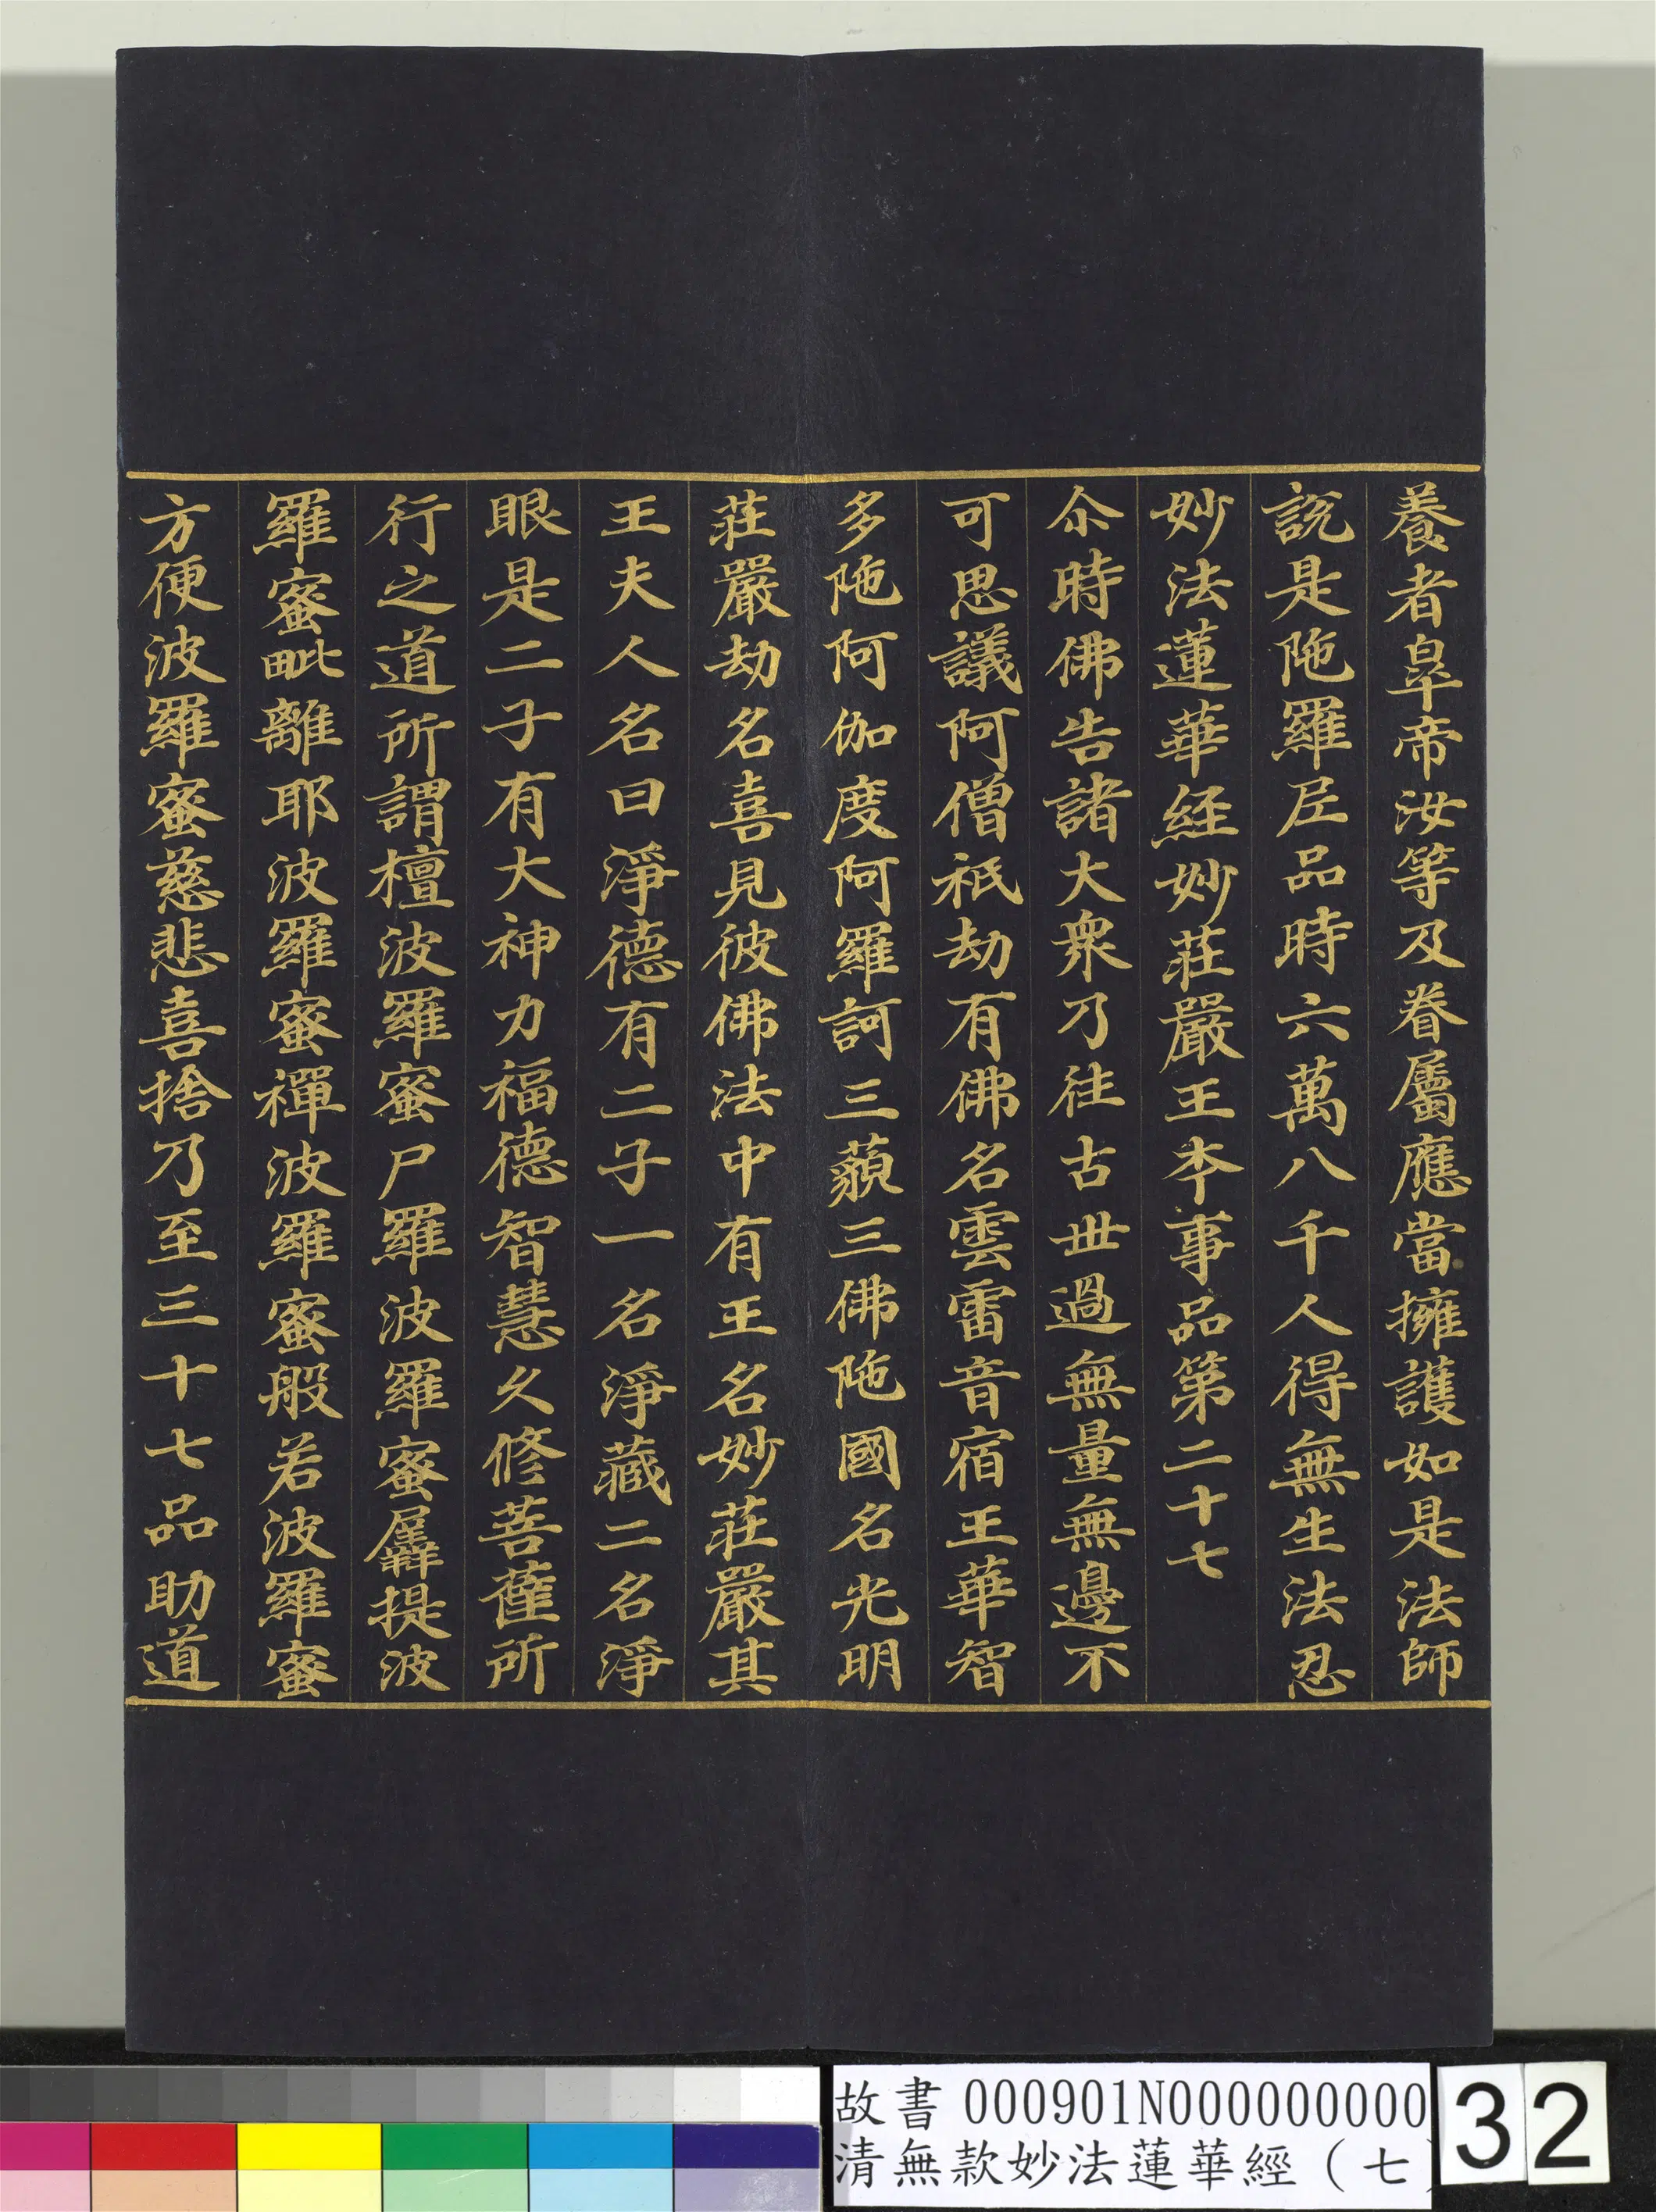 養者皐帝汝等及眷屬應當擁護如是法師
說是陁羅尼品時六萬八千人得無生法忍
妙法蓮華經妙莊嚴王夲事品第二十七
尒時佛告諸大衆乃往古世過無量無邊不
可思議阿僧祇劫有佛名雲雷音宿王華智
多陁阿伽度阿羅訶三藐三佛陁國名光明
莊嚴劫名喜見彼佛法中有王名妙莊嚴其
王夫人名曰淨德有二子一名淨藏二名淨
眼是二子有大神力福德智慧久修菩薩所
行之道所謂檀波羅蜜尸羅波羅蜜羼提波
羅蜜毗離耶波羅蜜禪波羅蜜般若波羅蜜
方便波羅蜜慈悲喜捨乃至三十七品助道
故書 000901N000000000
清無款妙法蓮華經（七
32